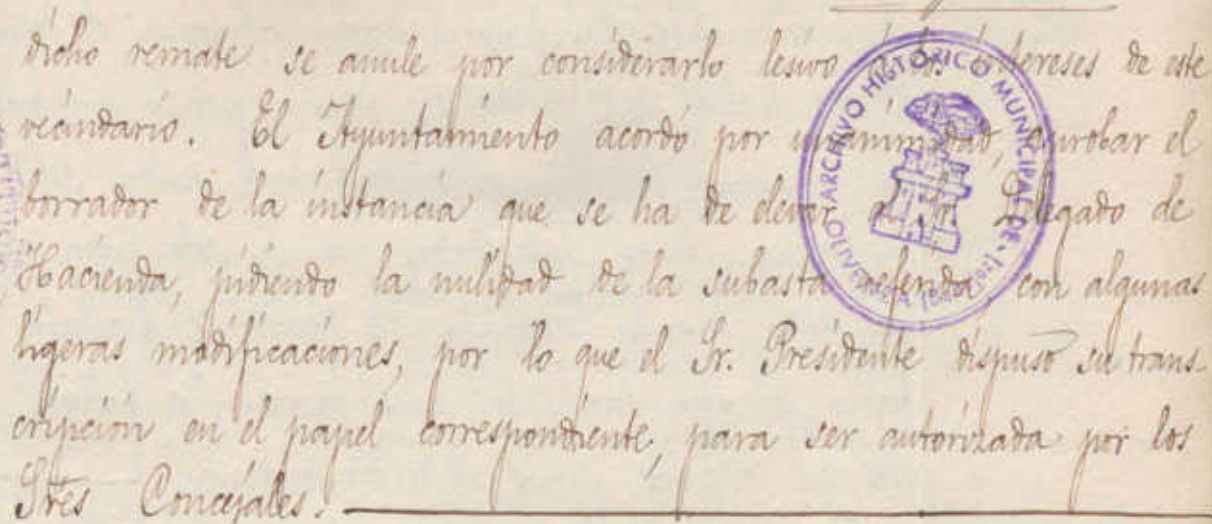 dicho remate se anule por considerarlo lesivo á los intereses de este
vecindario. El Ayuntamiento acordó por unanimidad, aprobar el
borrador de la instancia que se ha de elevar al Sr. Delegado de
Hacienda, pidiendo la nulidad de la subasta referida, con algunas
ligeras modificaciones, por lo que el Sr. Presidente dispuso su trans-
cripción en el papel correspondiente, para ser autorizada por los
Sres Concejales.
ARCHIVO HISTÓRICO MUNICIPAL DE
OLIVENZA (Badajoz)